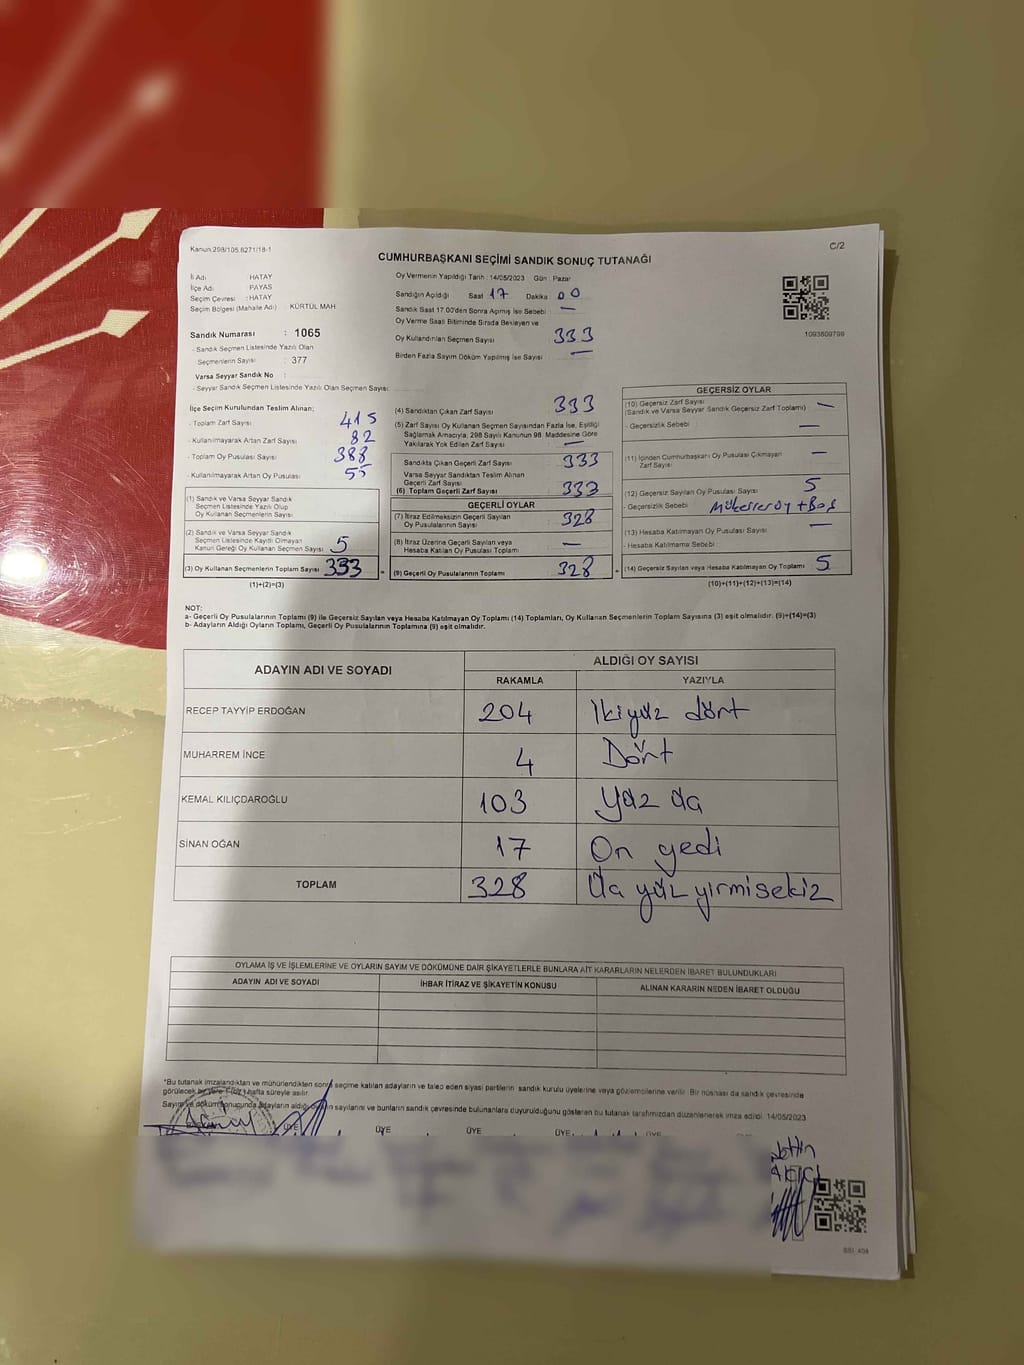 Kanun:298/105,6271/18-1
C/2
CUMHURBAŞKANI SEÇİMİ SANDIK SONUÇ TUTANAĞI
İl Adı : HATAY
İlçe Adı : PAYAS
Seçim Çevresi : HATAY
Seçim Bölgesi (Mahalle Adı) : KÜRTÜL MAH
Sandık Numarası : 1065
- Sandık Seçmen Listesinde Yazılı Olan
Seçmenlerin Sayısı : 377
Varsa Seyyar Sandık No :
- Seyyar Sandık Seçmen Listesinde Yazılı Olan Seçmen Sayısı:
Oy Vermenin Yapıldığı Tarih : 14/05/2023 Gün : Pazar
Sandığın Açıldığı Saat : 17 Dakika : 00
Sandık Saat 17.00'den Sonra Açılmış İse Sebebi : —
Oy Verme Saati Bitiminde Sırada Bekleyen ve
Oy Kullandırılan Seçmen Sayısı : 333
Birden Fazla Sayım Döküm Yapılmış İse Sayısı : —
1093809799
İlçe Seçim Kurulundan Teslim Alınan;
- Toplam Zarf Sayısı : 415
- Kullanılmayarak Artan Zarf Sayısı : 82
- Toplam Oy Pusulası Sayısı : 388
- Kullanılmayarak Artan Oy Pusulası : 55
(1) Sandık ve Varsa Seyyar Sandık
Seçmen Listesinde Yazılı Olup
Oy Kullanan Seçmenlerin Sayısı :
(2) Sandık ve Varsa Seyyar Sandık
Seçmen Listesinde Kayıtlı Olmayan
Kanun Gereği Oy Kullanan Seçmen Sayısı : 5
(3) Oy Kullanan Seçmenlerin Toplam Sayısı : 333
(1)+(2)=(3)
(4) Sandıktan Çıkan Zarf Sayısı : 333
(5) Zarf Sayısı Oy Kullanan Seçmen Sayısından Fazla İse, Eşitliği
Sağlamak Amacıyla, 298 Sayılı Kanunun 98. Maddesine Göre
Yakılarak Yok Edilen Zarf Sayısı : —
Sandıkta Çıkan Geçerli Zarf Sayısı : 333
Varsa Seyyar Sandıktan Teslim Alınan
Geçerli Zarf Sayısı :
(6) Toplam Geçerli Zarf Sayısı : 333
GEÇERLİ OYLAR
(7) İtiraz Edilmeksizin Geçerli Sayılan
Oy Pusulalarının Sayısı : 328
(8) İtiraz Üzerine Geçerli Sayılan veya
Hesaba Katılan Oy Pusulası Toplamı : —
= (9) Geçerli Oy Pusulalarının Toplamı : 328
GEÇERSİZ OYLAR
(10) Geçersiz Zarf Sayısı
(Sandık ve Varsa Seyyar Sandık Geçersiz Zarf Toplamı) : —
- Geçersizlik Sebebi : —
(11) İçinden Cumhurbaşkanı Oy Pusulası Çıkmayan
Zarf Sayısı : —
(12) Geçersiz Sayılan Oy Pusulası Sayısı : 5
- Geçersizlik Sebebi : Mükerrer oy + Boş
(13) Hesaba Katılmayan Oy Pusulası Sayısı : —
- Hesaba Katılmama Sebebi :
+ (14) Geçersiz Sayılan veya Hesaba Katılmayan Oy Toplamı : 5
(10)+(11)+(12)+(13)=(14)
NOT:
a- Geçerli Oy Pusulalarının Toplamı (9) ile Geçersiz Sayılan veya Hesaba Katılmayan Oy Toplamı (14) Toplamları, Oy Kullanan Seçmenlerin Toplam Sayısına (3) eşit olmalıdır. (9)+(14)=(3)
b- Adayların Aldığı Oyların Toplamı, Geçerli Oy Pusulalarının Toplamına (9) eşit olmalıdır.
ADAYIN ADI VE SOYADI ALDIĞI OY SAYISI
RAKAMLA YAZIYLA
RECEP TAYYİP ERDOĞAN 204 İkiyüz dört
MUHARREM İNCE 4 Dört
KEMAL KILIÇDAROĞLU 103 Yüz üç
SİNAN OĞAN 17 On yedi
TOPLAM 328 Üç yüz yirmisekiz
OYLAMA İŞ VE İŞLEMLERİNE VE OYLARIN SAYIM VE DÖKÜMÜNE DAİR ŞİKAYETLERLE BUNLARA AİT KARARLARIN NELERDEN İBARET BULUNDUKLARI
ADAYIN ADI VE SOYADI İHBAR İTİRAZ VE ŞİKAYETİN KONUSU ALINAN KARARIN NEDEN İBARET OLDUĞU
*Bu tutanak imzalandıktan ve mühürlendikten sonra seçime katılan adayların ve talep eden siyasi partilerin sandık kurulu üyelerine veya gözlemcilerine verilir. Bir nüshası da sandık çevresinde
görülecek bir yere 1 (bir) hafta süreyle asılır.
Sayım ve döküm sonucunda adayların aldığı oyların sayılarını ve bunların sandık çevresinde bulunanlara duyurulduğunu gösteren bu tutanak tarafımızdan düzenlenerek imza edildi. 14/05/2023
ÜYE ÜYE ÜYE ÜYE ÜYE